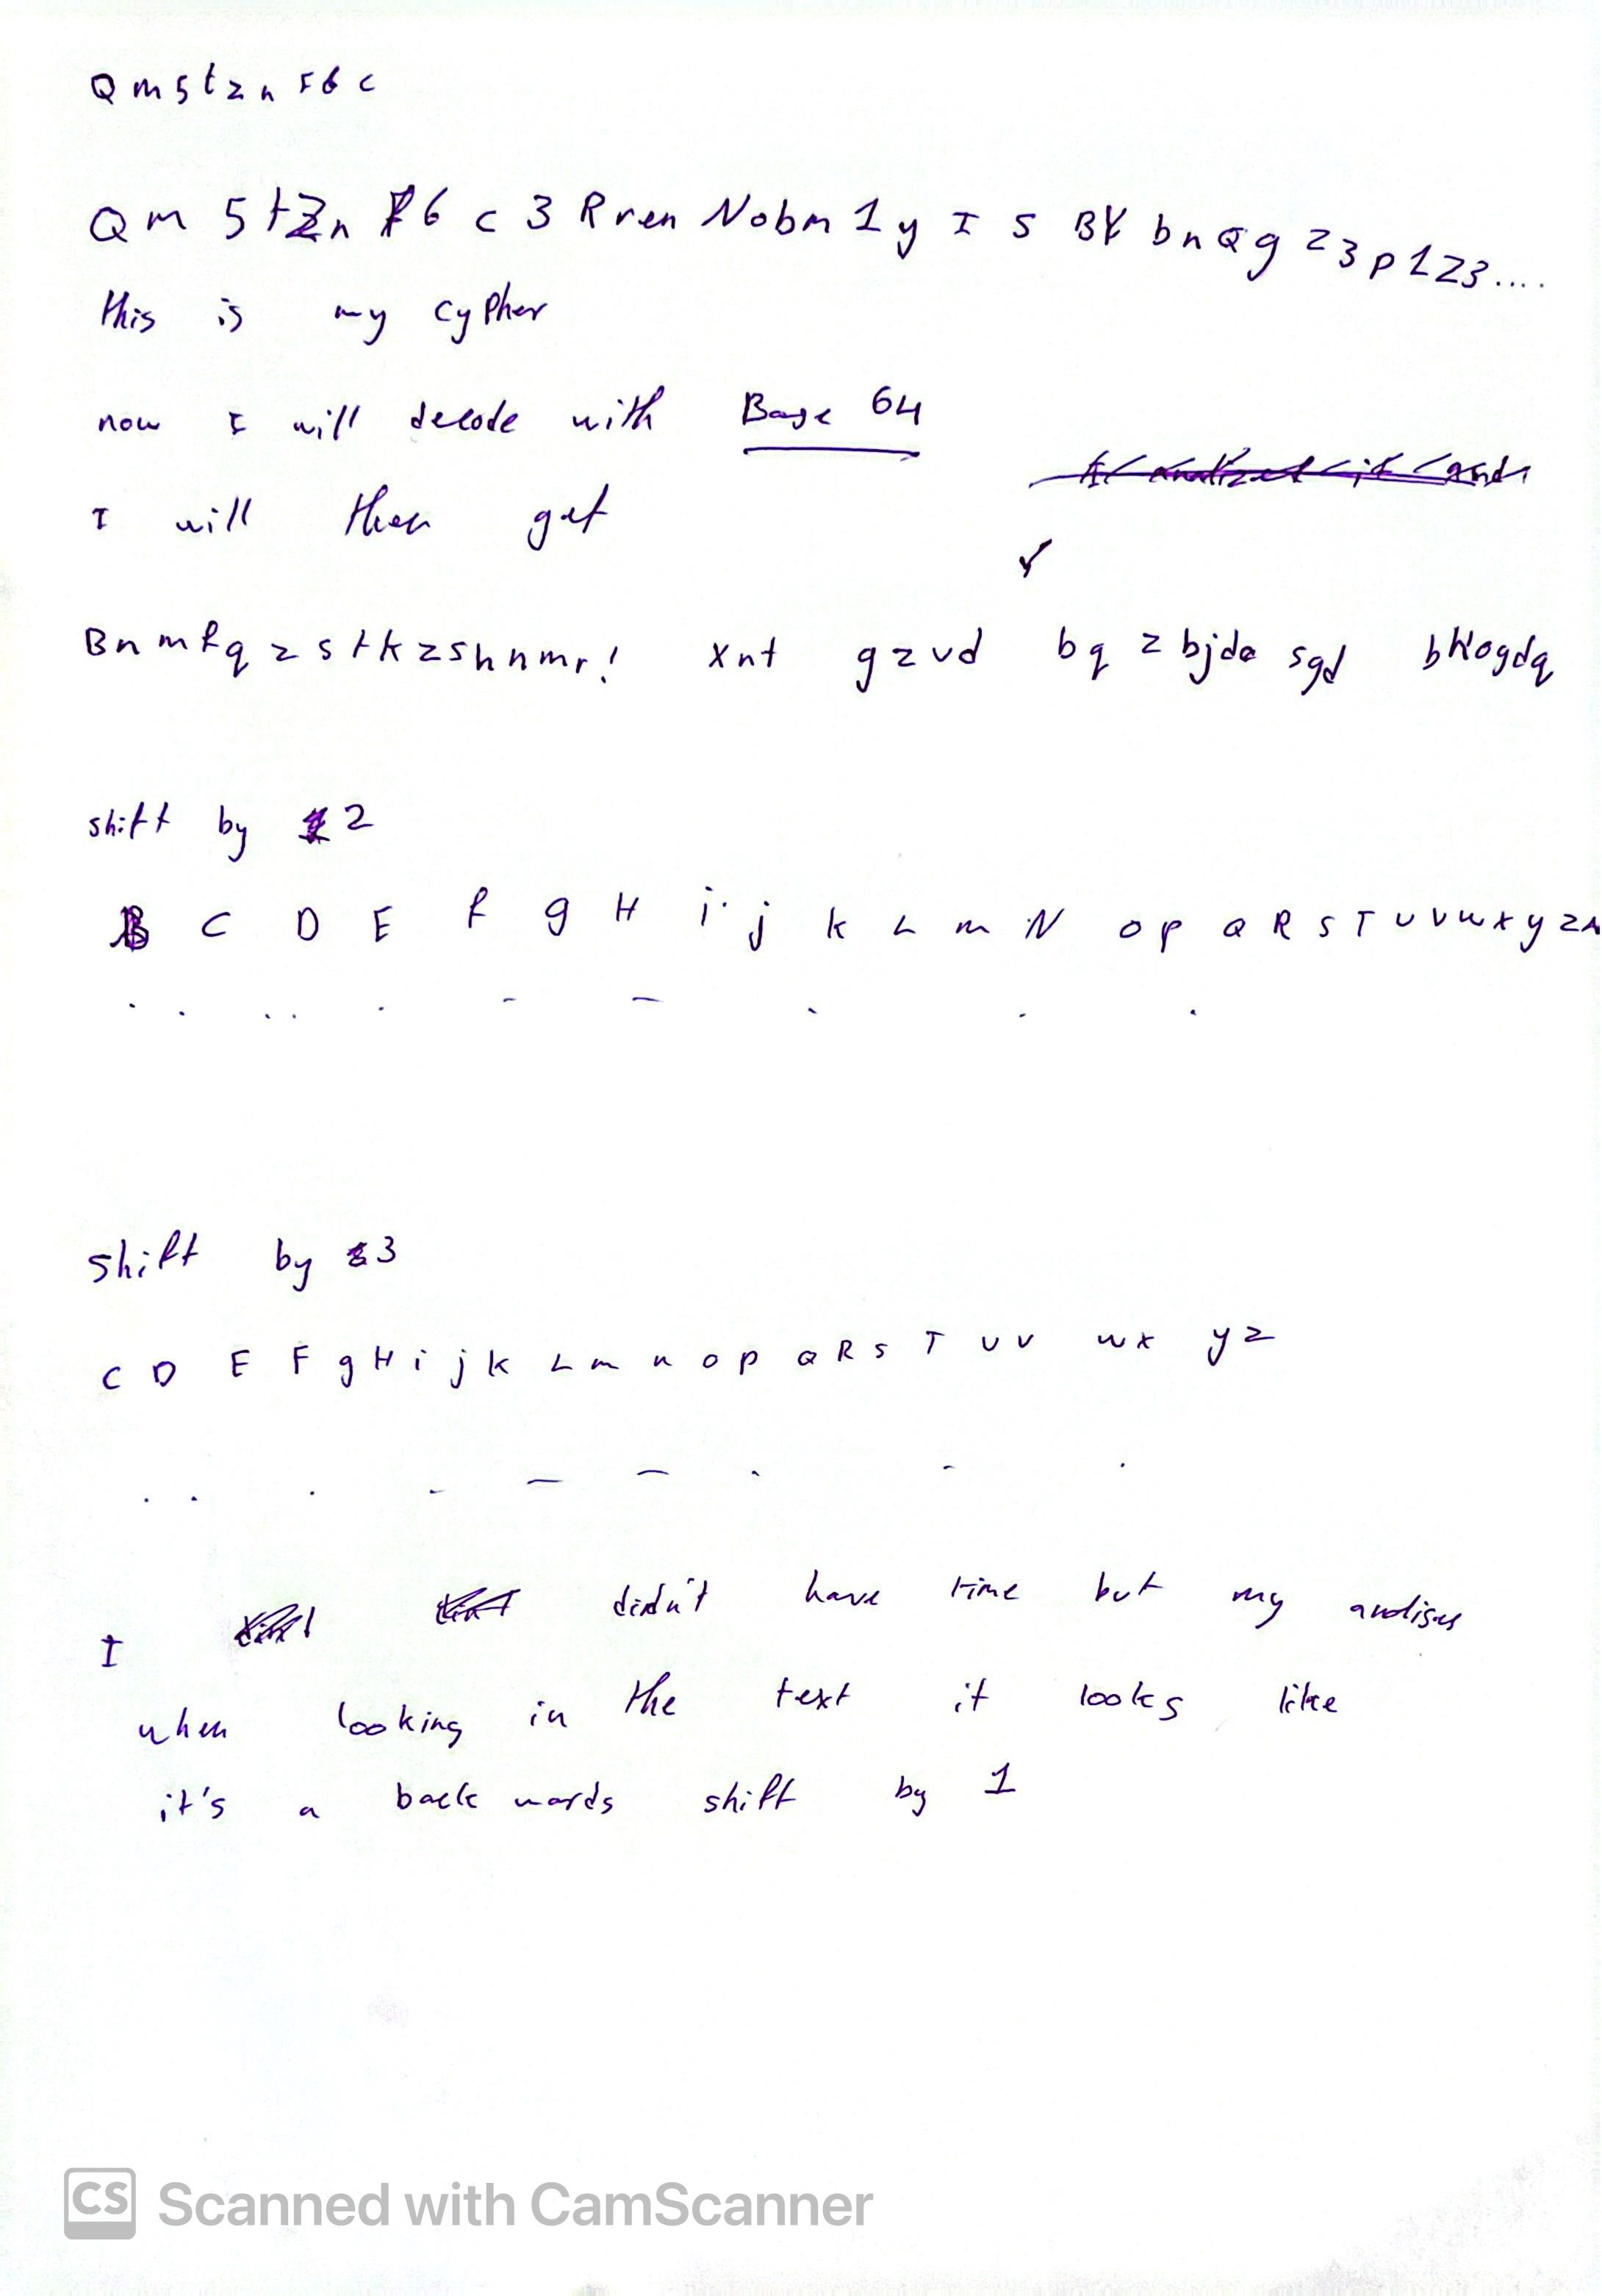 Qm5tzn F6 c
Qm 5tZn F6 c 3 Rren Nobm 1y I S BY bnQg z3p1Z3....
this is my cypher
now I will decode with Base 64
I will then get
Bnmfqzstkzshnmr! xnt gzvd bqzbjdc sgd bkogdq
shift by 2
B C D E f g H i j k L m N o p Q R S T U V W X y z A
shift by 3
C D E F g H i j k L m n o p Q R S T U V w x y z
I didn't have time but my
when looking in the text it looks like
it's a backwards shift by 1
CS Scanned with CamScanner